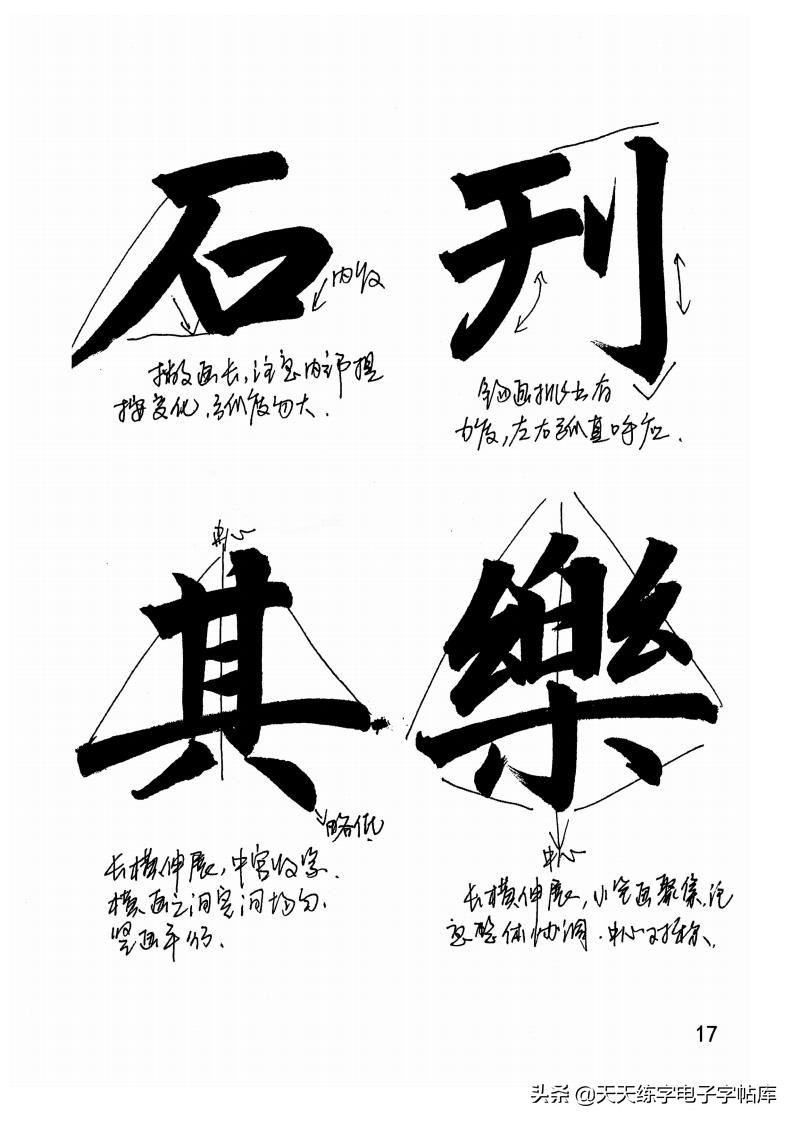 石
内收
撇画长，注意内部提
按变化，弧度勿大．
刊
钩画挑出有
力度，左右弧直呼应．
中心
其
略低
长横伸展，中宫收紧．
横画之间空间均匀．
竖画平行．
樂
中心
长横伸展，小笔画聚集，注
意整体协调．中心对称、
17
头条 @天天练字电子字帖库